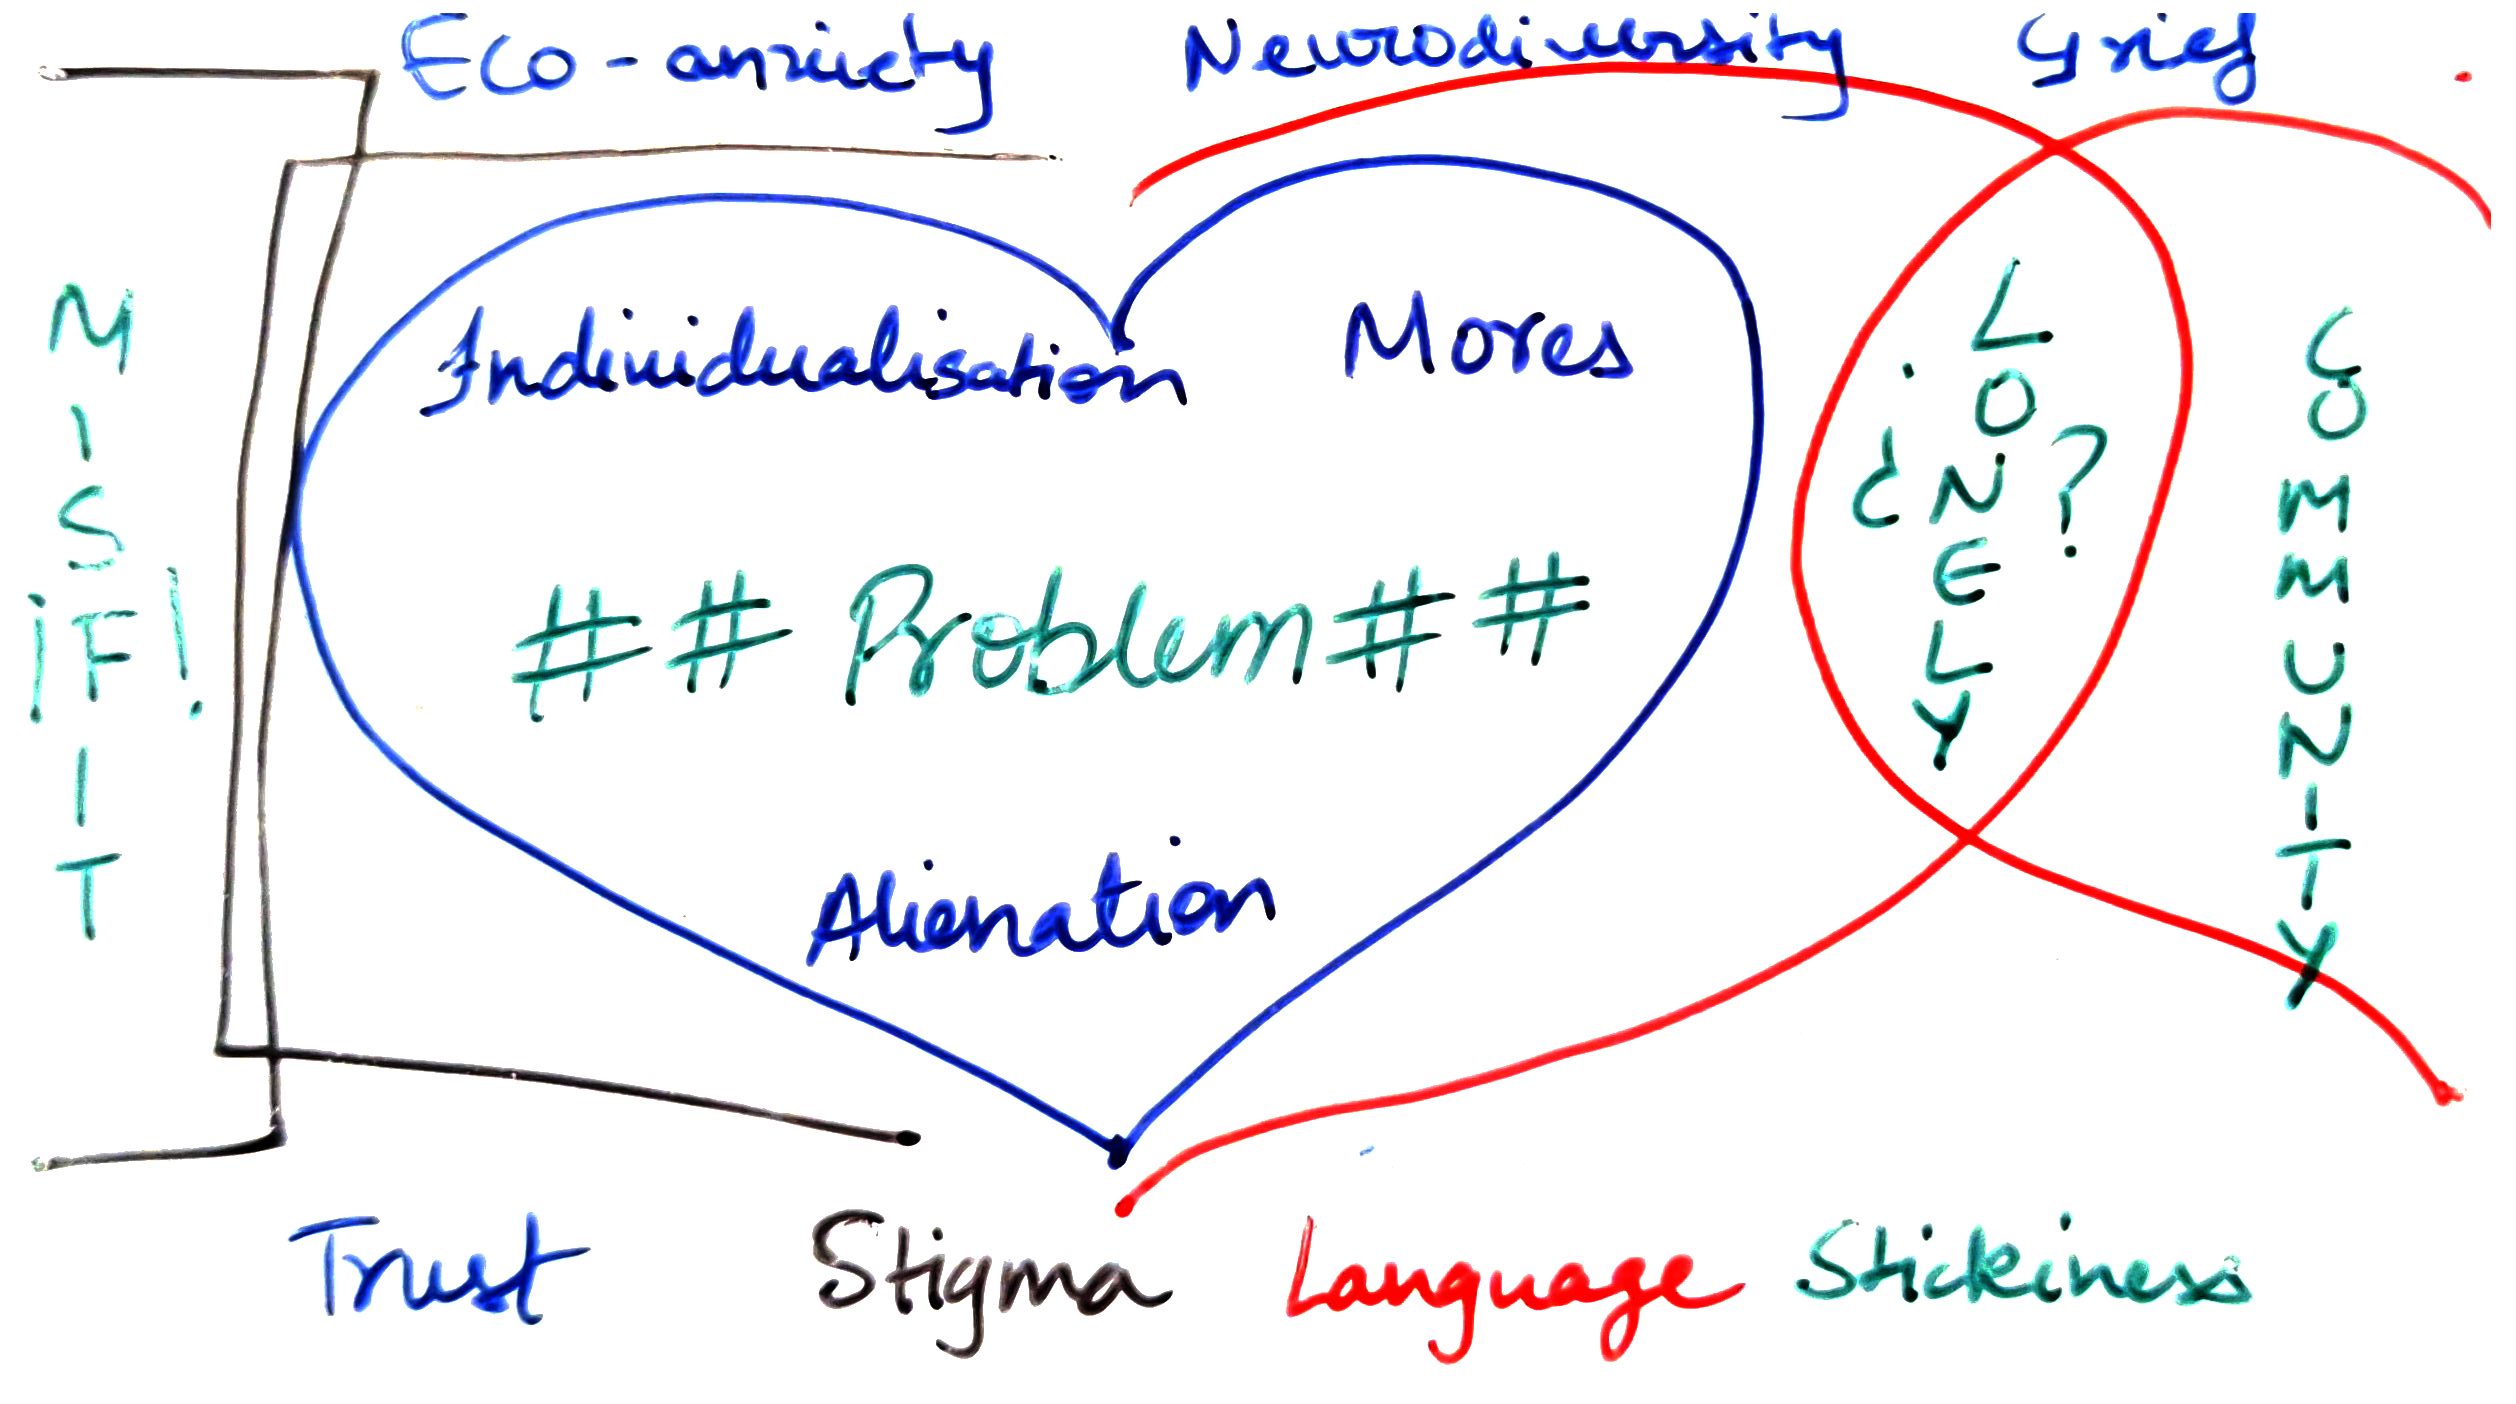 Eco-anxiety Neurodiversity Grief
¡MISFIT!
Individualisation Mores
##Problem##
Alienation
¿LONELY?
COMMUNITY
Trust Stigma Language Stickiness